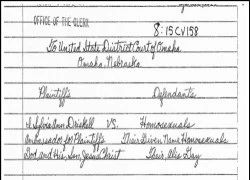 OFFICE OF THE CLERK
8:15CV158
To United State District Court of Omaha
Omaha, Nebraska
Plaintiffs Defendants
I Sylvia Ann Driskell VS. Homosexuals
Ambassador for Plaintiffs Their Given Name Homosexuals
God, and His, Son, Jesus Christ Their, Alis Gay